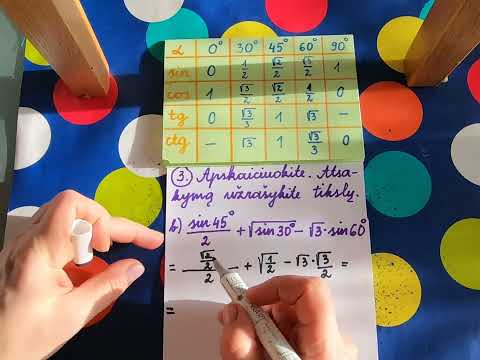 α 0° 30° 45° 60° 90°
sin 0 1/2 √2/2 √3/2 1
cos 1 √3/2 √2/2 1/2 0
tg 0 √3/3 1 √3 –
ctg – √3 1 √3/3 0
3. Apskaičiuokite. Atsa-
kymą užrašykite tikslų.
b) sin45°/2 + √sin30° – √3 · sin60°
= (√2/2)/2 + √1/2 – √3 · √3/2 =
=